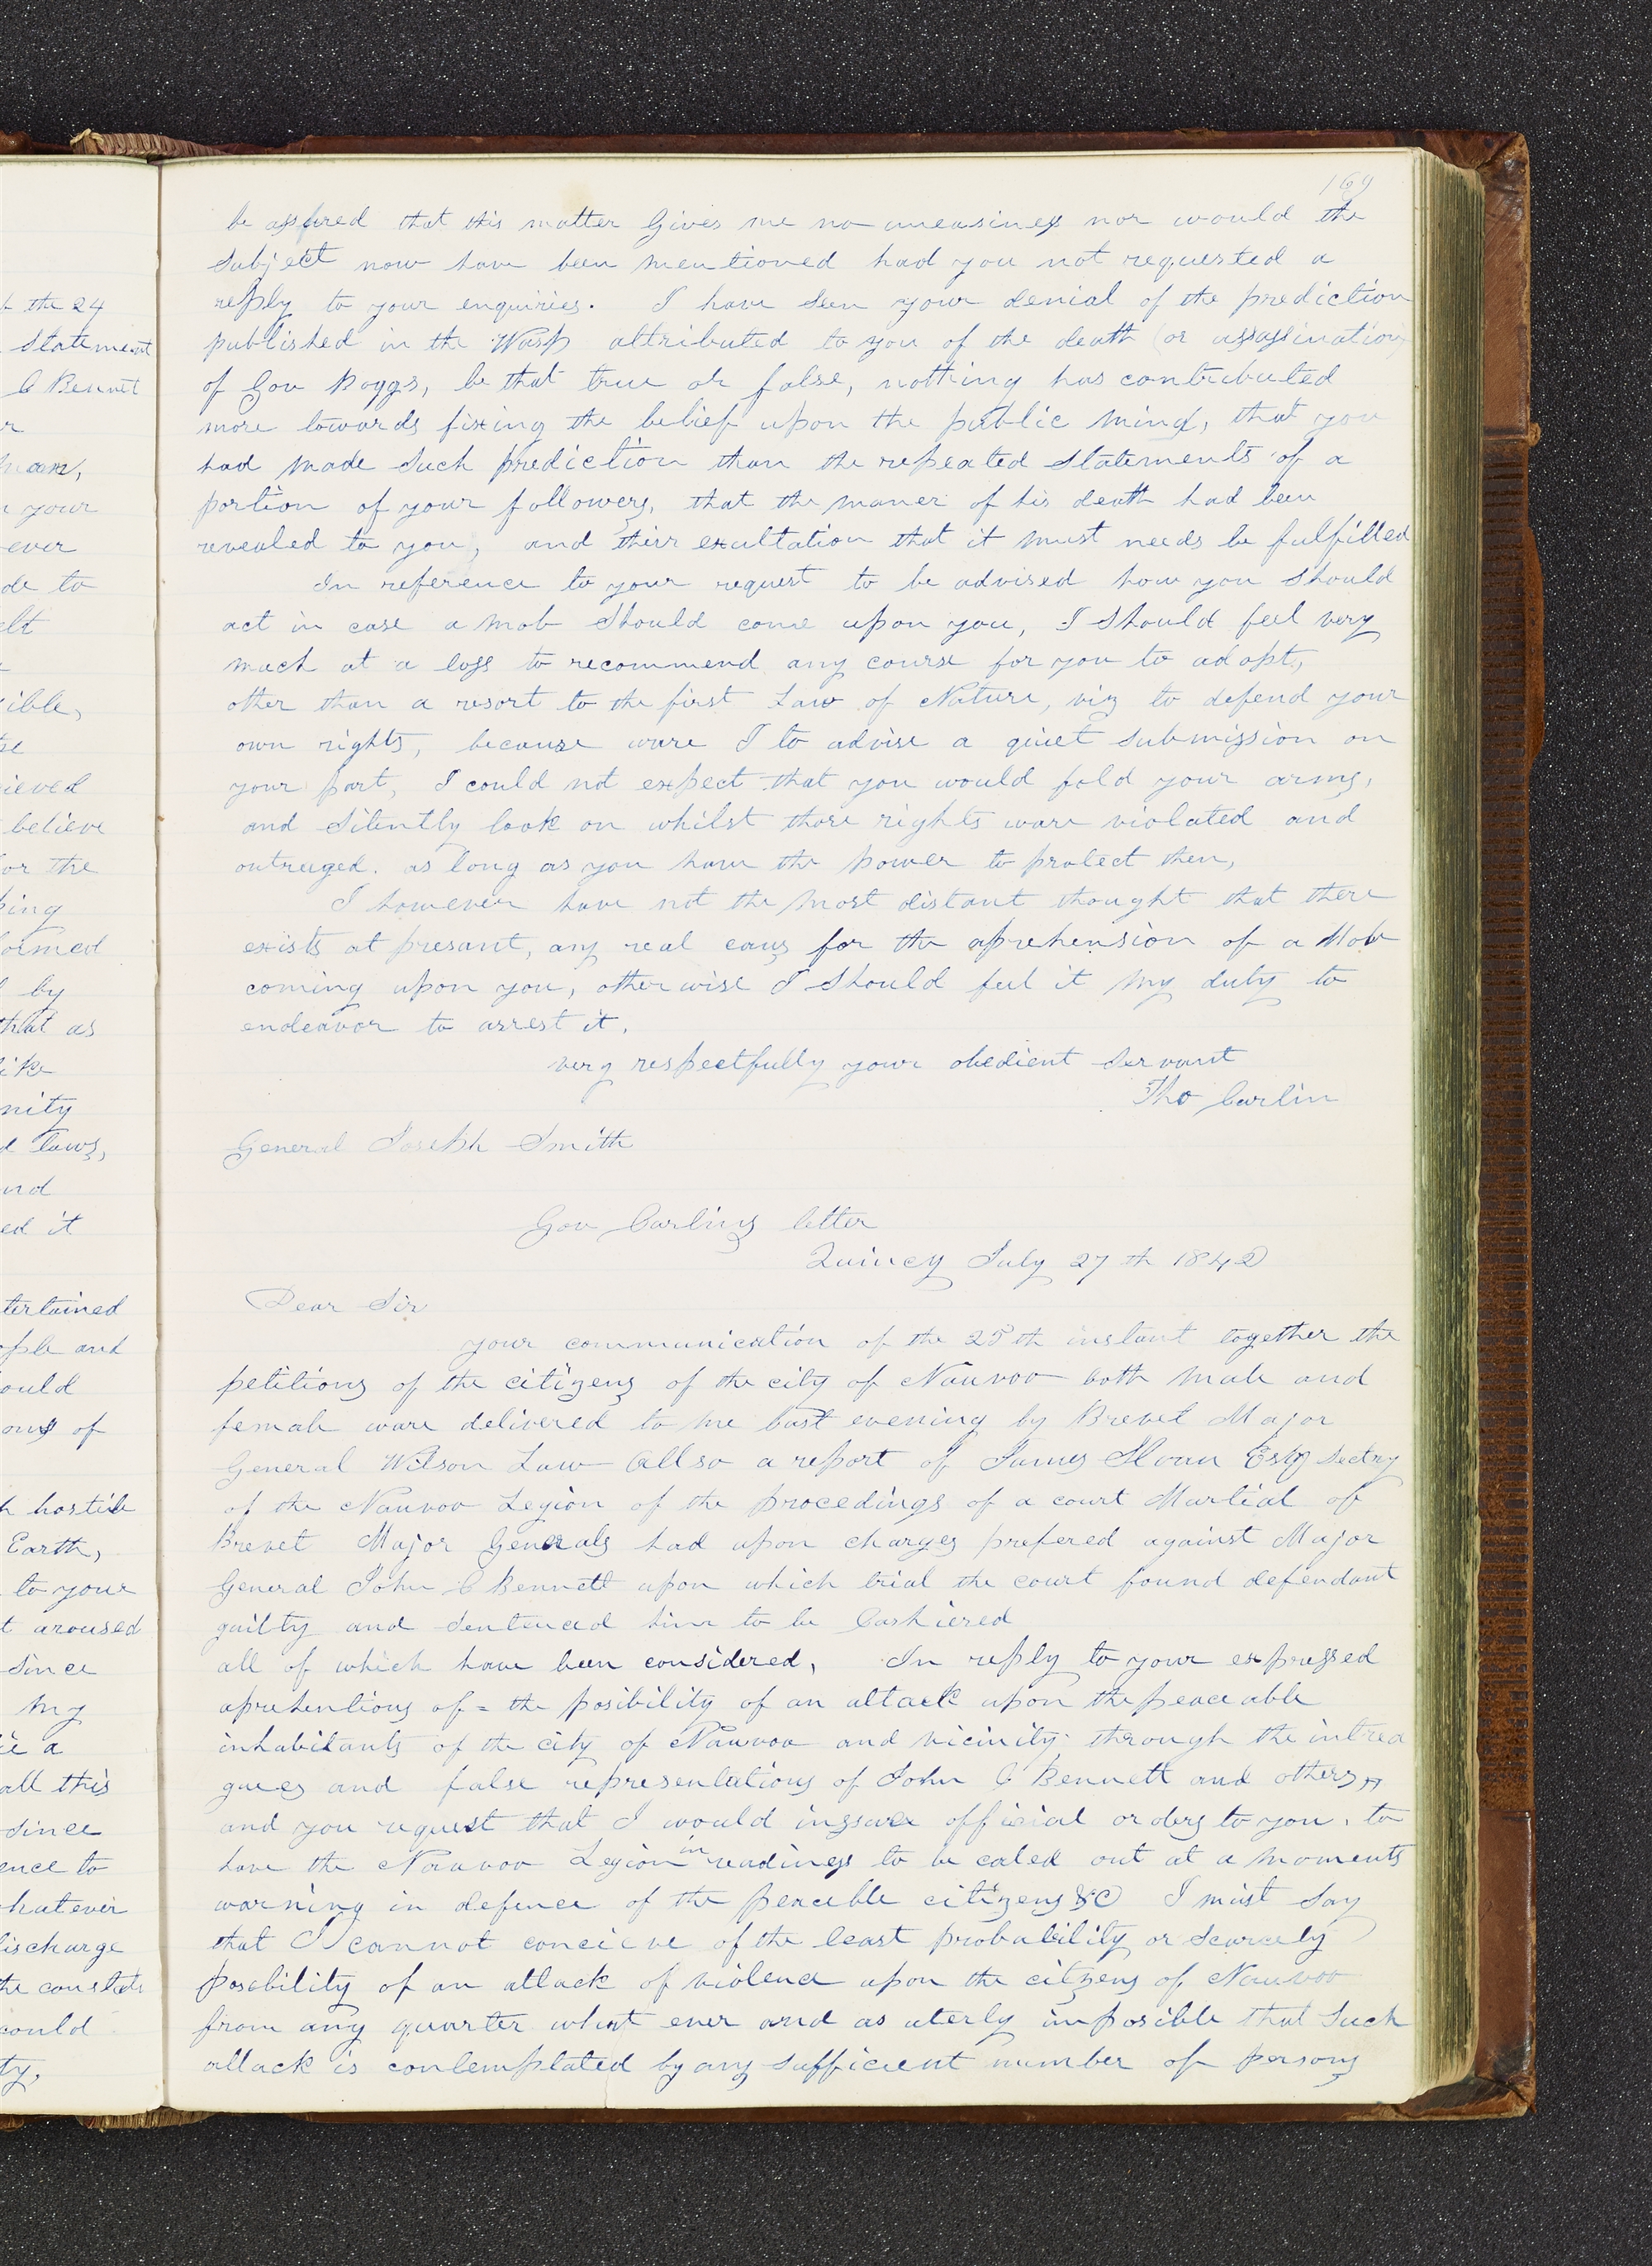 169
be assured that this matter Gives me no uneasiness nor would the
Subject now have been mentioned had you not requested a
reply to your enquiries. I have Seen your denial of the prediction
published in the Wasp attributed to you of the death (or assassination)
of Gov Boggs, be that true or false, nothing has contributed
more towards fixing the belief upon the public mind, that you
had made Such prediction than the repeated Statements of a
portion of your followers, that the maner of his death had been
revealed to you, and their exultation that it must needs be fulfilled
In reference to your request to be advised how you Should
act in case a mob Should come upon you, I Should feel very
much at a loss to recommend any course for you to adopt,
other than a resort to the first Law of Nature, viz to defend your
own rights, because ware I to advise a quiet Submission on
your part, I could not expect that you would fold your arms,
and Silently look on whilst those rights ware violated and
outreaged. as long as you have the power to protect then,
I however have not the most distant thought that there
exists at presant, any real caus for the aprehension of a Mob
coming upon you, otherwise I Should feel it my duty to
endeavor to arrest it.
very respectfully your obedient Servant
Tho Carlin
General Joseph Smith
Gov Carlins letter
Quincy July 27th 1842
Dear Sir
your communication of the 25th instant together the
petitions of the citizens of the city of Nauvoo both male and
female ware delivered to me last evening by Brevet Major
General Wilson Law Allso a report of James Sloan Esq Sectry
of the Nauvoo Legion of the procedings of a court Martial of
Brevet Major Generals had upon charges prefered against Major
General John C Bennett upon which trial the court found defendant
guilty and Sentenced him to be Cashiered
all of which have been considered, In reply to your expressed
aprehentions of = the posibility of an attack upon the peaceable
inhabitants of the city of Nauvoo and vicinity through the intrea
gues and false representations of John C Bennett and others,
and you request that I would inssure official orders to you. to
have the Nauvoo Legion in readiness to be caled out at a moments
warning in defence of the peaceble citizens &C I must Say
that I cannot concieve of the least probability or Scarcely
posebility of an attack of violence upon the citzens of Nauvoo
from any quarter what ever and as uterly imposible that Such
attack is contemplated by any Sufficient number of persons
t the 24
Statement
C Bennet
r
your
ever
de to
elt
ible,
ieved
believe
or the
king
ormed
by
that as
ike
nity
d laws,
and
ed it
tertained
ple and
ould
ons of
hostile
Earth,
to your
t aroused
Since
my
a
all this
Since
ence to
whatever
discharge
could
ty,